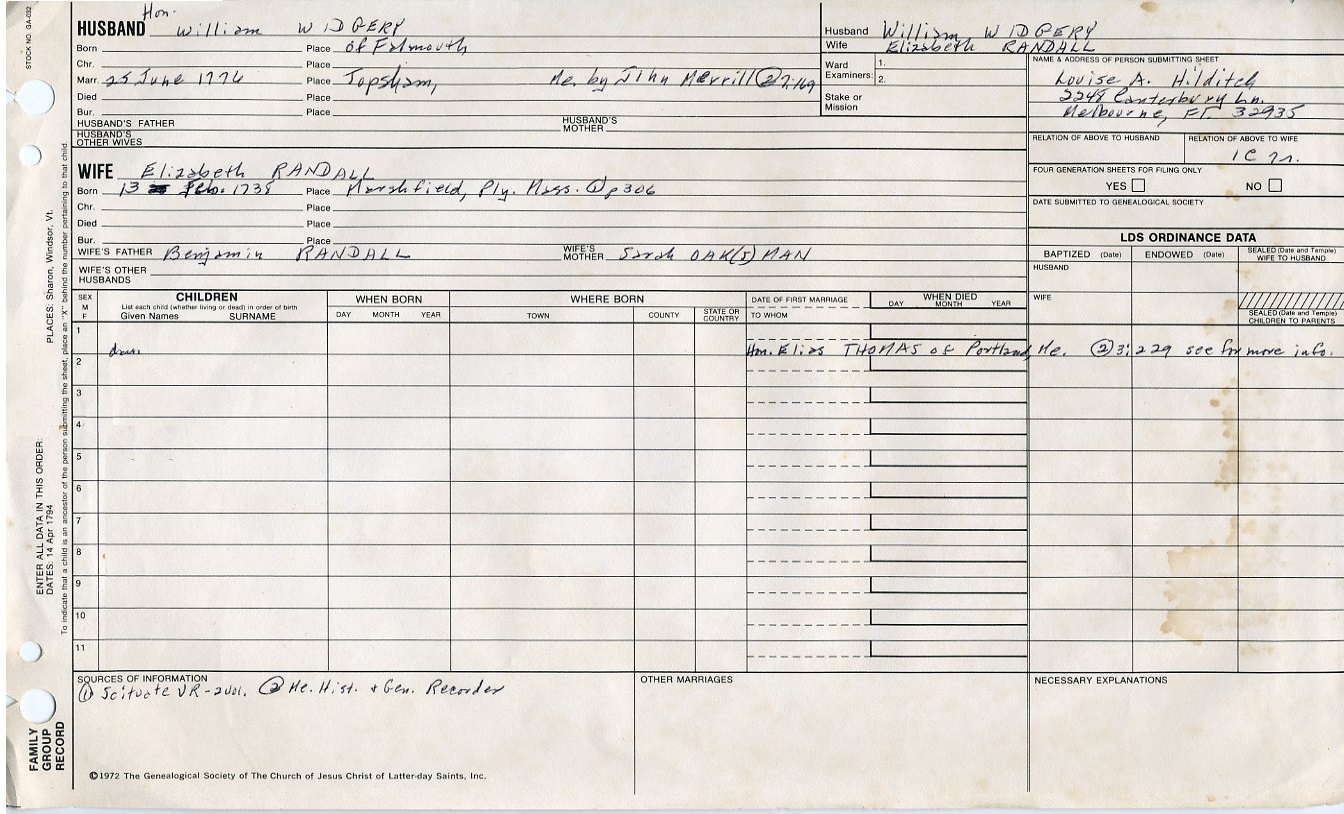 STOCK NO. GA-032
Hon.
HUSBAND William WIDGERY
Born Place of Falmouth
Chr. Place
Marr. 25 June 1776 Place Topsham, Me. by John Merrill ② 7:169
Died Place
Bur. Place
HUSBAND'S FATHER HUSBAND'S MOTHER
HUSBAND'S OTHER WIVES
Husband William WIDGERY
Wife Elizabeth RANDALL
Ward Examiners: 1.
2.
Stake or Mission
NAME & ADDRESS OF PERSON SUBMITTING SHEET
Louise A. Hilditch
2248 Canterbury Ln.
Melbourne, Fl. 32935
RELATION OF ABOVE TO HUSBAND RELATION OF ABOVE TO WIFE
1C 7r.
FOUR GENERATION SHEETS FOR FILING ONLY
YES NO
DATE SUBMITTED TO GENEALOGICAL SOCIETY
WIFE Elizabeth RANDALL
Born 13 Feb. 1738 Place Marshfield, Ply. Mass. ① p306
Chr. Place
Died Place
Bur. Place
WIFE'S FATHER Benjamin RANDALL WIFE'S MOTHER Sarah OAK(S)MAN
WIFE'S OTHER HUSBANDS
LDS ORDINANCE DATA
BAPTIZED (Date) ENDOWED (Date) SEALED (Date and Temple) WIFE TO HUSBAND
HUSBAND
WIFE
SEALED (Date and Temple) CHILDREN TO PARENTS
SEX M F
CHILDREN
List each child (whether living or dead) in order of birth
Given Names SURNAME
WHEN BORN
DAY MONTH YEAR
WHERE BORN
TOWN COUNTY STATE OR COUNTRY
DATE OF FIRST MARRIAGE
TO WHOM
WHEN DIED
DAY MONTH YEAR
1
dau. Hon. Elias THOMAS of Portland, Me. ② 3:229 see for more info.
2
3
4
5
6
7
8
9
10
11
SOURCES OF INFORMATION
① Scituate VR-2vol. ② Me. Hist. & Gen. Recorder
OTHER MARRIAGES
NECESSARY EXPLANATIONS
©1972 The Genealogical Society of The Church of Jesus Christ of Latter-day Saints, Inc.
PLACES: Sharon, Windsor, Vt.
ENTER ALL DATA IN THIS ORDER:
DATES: 14 Apr 1794
To indicate that a child is an ancestor of the person submitting the sheet, place an "X" behind the number pertaining to that child.
FAMILY GROUP RECORD